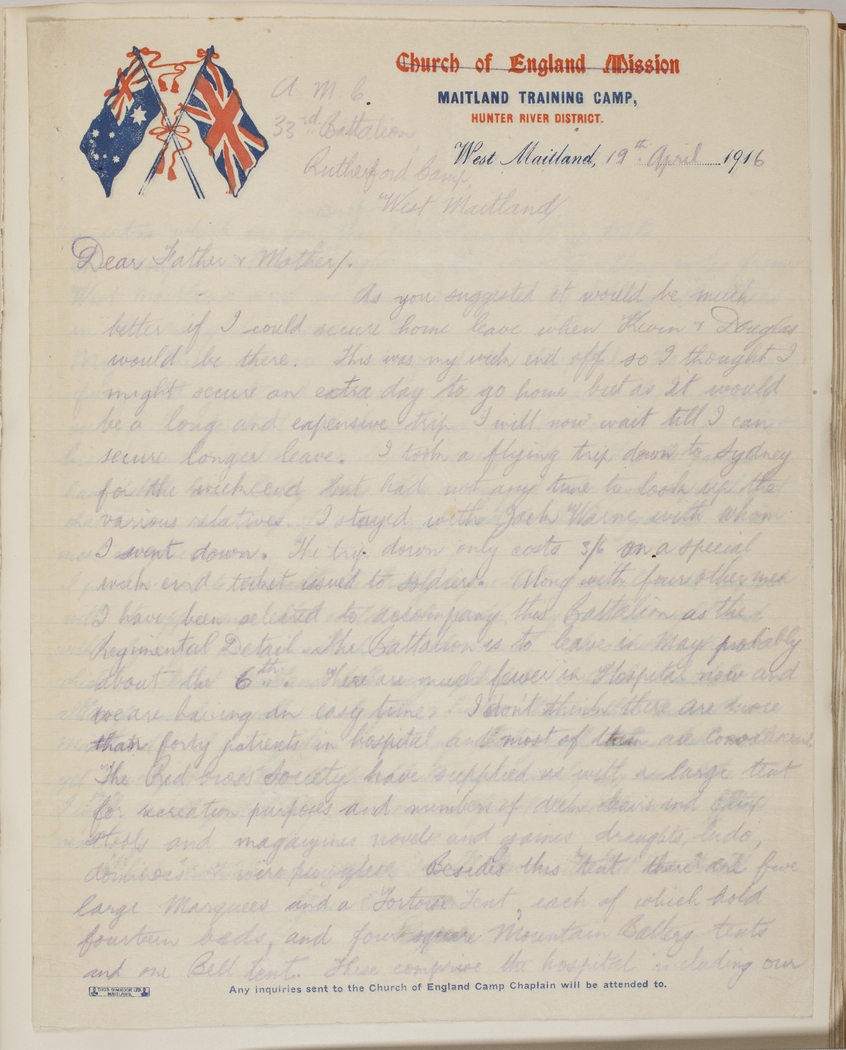 Church of England Mission
MAITLAND TRAINING CAMP,
HUNTER RIVER DISTRICT.
A M C.
33rd Battalion
West Maitland, 19th April 1916
Rutherford Camp,
West Maitland
Dear Father & Mother/.
As you suggested it would be much
better if I could secure home leave when Kevin & Douglas
would be there. This was my week end off so I thought I
might secure an extra day to go home but as it would
be a long and expensive trip I will now wait till I can
secure longer leave. I took a flying trip down to Sydney
for the weekend but had not any time to look up the
various relatives. I stayed with Jack Warne with whom
I went down. The trip down only costs 3/6 on a special
week end ticket issued to soldiers. Along with four other men
I have been selected to accompany this Battalion as the
Regimental Detail. The Battalion is to leave in May probably
about the 6th. There are much fewer in Hospital now and
we are having an easy time. I don't think there are more
than forty patients in hospital and most of them are
The Red Cross Society have supplied us with a large tent
for recreation purposes and numbers of deck chairs and camp
stools and magazines novels and games, draughts, ludo,
dominoes & wire puzzles. Besides this tent there are five
large Marquees and a Tortoise Tent, each of which hold
fourteen beds, and four square Mountain Battery tents
and one Bell tent. These comprise the hospital including our
Any inquiries sent to the Church of England Camp Chaplain will be attended to.